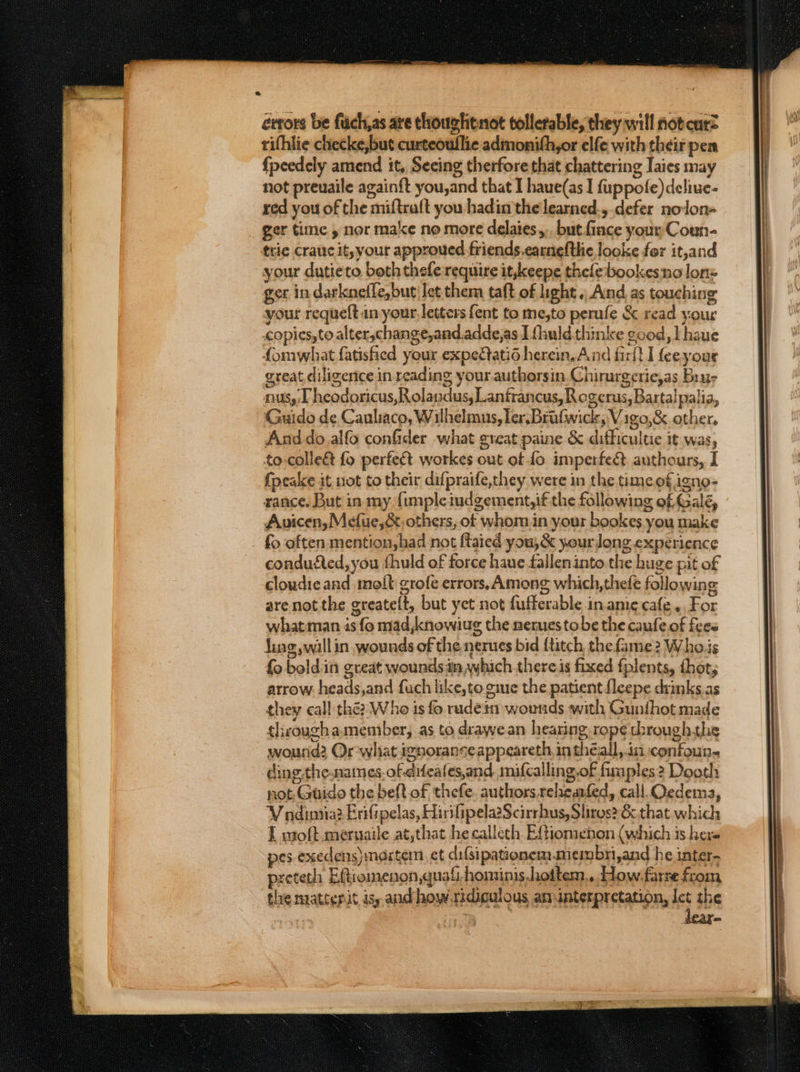 errors be ſuch,as are thought not tollerable, they will not cur-
riſhlie checke,but curteouſlie admoniſh,or elſe with their pen
ſpeedely amend it. Seeing therfore that chattering Iaies may
not preuaile againſt you,and that I haue(as I ſuppoſe) deliue-
red you of the miſtruſt you had in the learned, defer no lon-
ger time, nor make no more delaies, but ſince your Coun-
trie craue it, your approued friends earneſtlie looke for it,and
your dutie to both theſe require it,keepe theſe bookes no lon-
ger in darkneſſe,but let them taſt of light. And as touching
your requeſt in your letters ſent to me,to peruſe & read your
copies,to alter,change,and adde,as I ſhuld thinke good, I haue
ſomwhat ſatisfied your expectatiō herein. And firſt I ſee your
great diligence in reading your authors in Chirurgerie,as Bru-
nus, Theodoricus,Rolandus,Lanfrancus, Rogerus, Bartalpalia,
Guido de Cauliaco, Wilhelmus,Ier.Brūſwick, Vigo,& other.
And do alſo conſider what great paine & difficultie it was,
to collect ſo perfect workes out of ſo imperfect authours, I
ſpeake it not to their diſpraiſe,they were in the time of igno-
rance. But in my ſimple iudgement,if the following of Galē,
Auicen, Meſue,& others, of whom in your bookes you make
ſo often mention,had not ſtaied you,& your long experience
conducted, you ſhuld of force haue fallen into the huge pit of
cloudie and moſt groſe errors. Among which,theſe following
are not the greateſt, but yet not ſufferable in anie caſe. For
what man is ſo mad,knowing the nerues to be the cauſe of fee-
ling, will in wounds of the nerues bid ſtitch the ſame? Who is
ſo bold in great wounds in which there is fixed ſplents, ſhot,
arrow heads,and ſuch like,to giue the patient ſleepe drinks as
they call thē? Who is ſo rude in wounds with Gunſhot made
through a member, as to drawe an hearing rope through the
wound? Or what ignorance appeareth in thē all, in confoun-
ding the names of diſeaſes,and miſcalling of ſimples? Dooth
not Guido the beſt of theſe authors rehearſed, call Oedema,
Vndimia? Eriſipelas, Hiriſipela? Scirrhus, Sliros? & that which
I moſt meruaile at,that he calleth Eſtiomenon (which is her-
pes exedens) mortem et diſsipationem membri,and he inter-
preteth Eſtiomenon,quaſi hominis hoſtem. How farre from
the matter it is, and how ridiculous an interpretation, let the
lear-